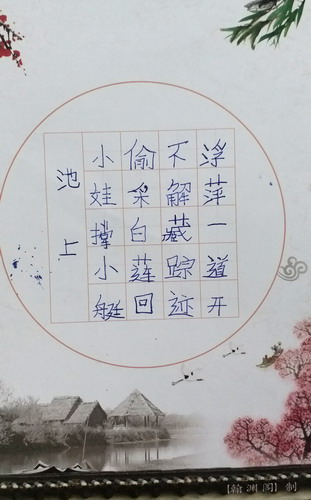 池上
小娃撑小艇
偷采白莲回
不解藏踪迹
浮萍一道开
【翰渊阁】制